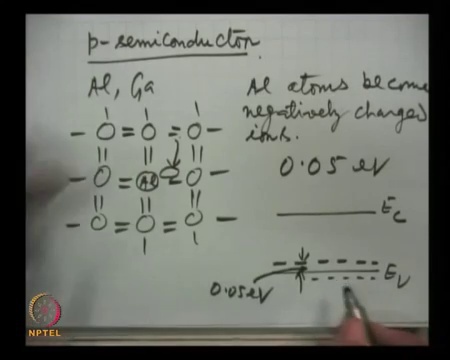 p-semiconductor
Al, Ga
Al atoms become
negatively charged
ions.
Al
0.05 eV
Ec
0.05eV
Ev
NPTEL